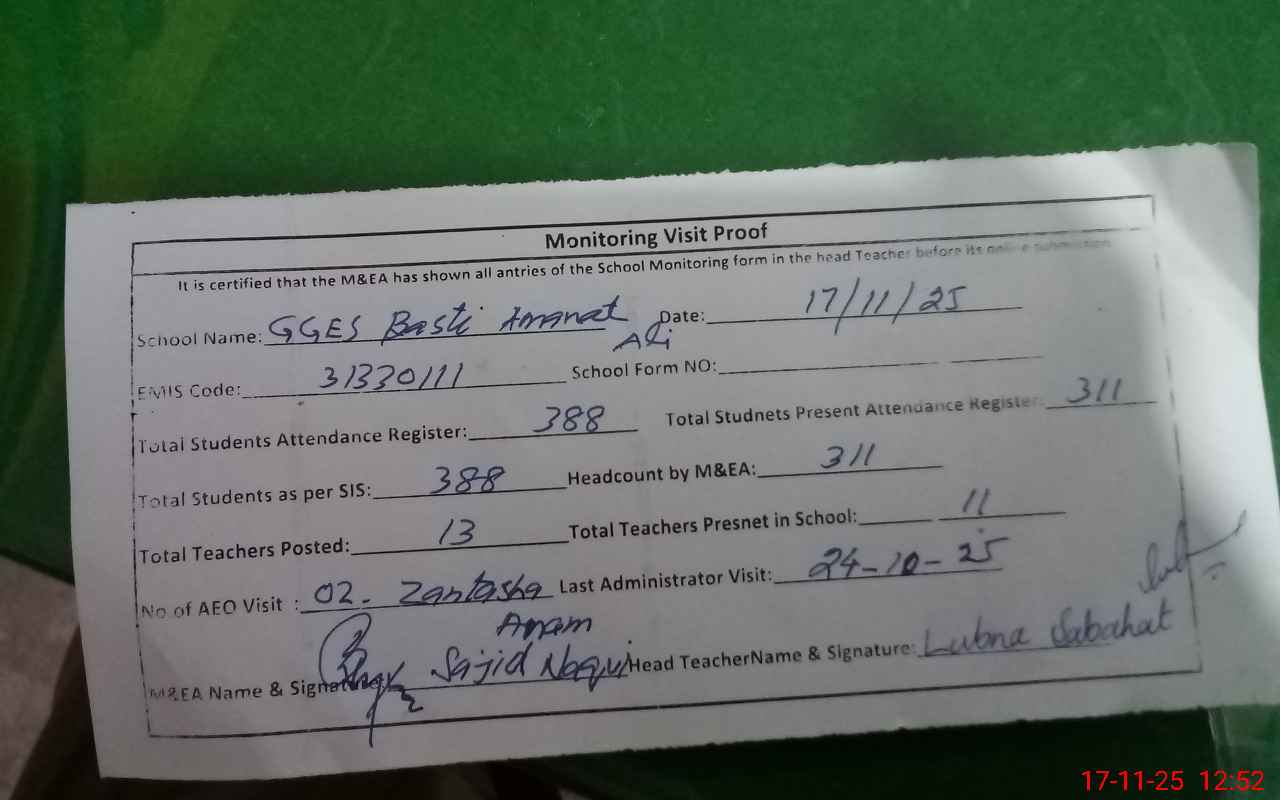 Monitoring Visit Proof
It is certified that the M&EA has shown all antries of the School Monitoring form in the head Teacher before its online submission
School Name: GGES Basti Amanat Ali Date: 17/11/25
EMIS Code: 31330111 School Form NO:
Total Students Attendance Register: 388 Total Studnets Present Attendance Register: 311
Total Students as per SIS: 388 Headcount by M&EA: 311
Total Teachers Posted: 13 Total Teachers Presnet in School: 11
No of AEO Visit : 02. Zantasha Anam Last Administrator Visit: 24-10-25
M&EA Name & Signature: Sajid Naqvi Head TeacherName & Signature: Lubna Sabahat
17-11-25 12:52